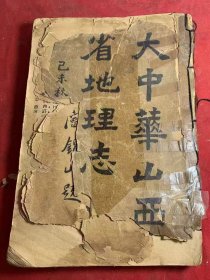 大中華山西
省地理志
己未秋
山題